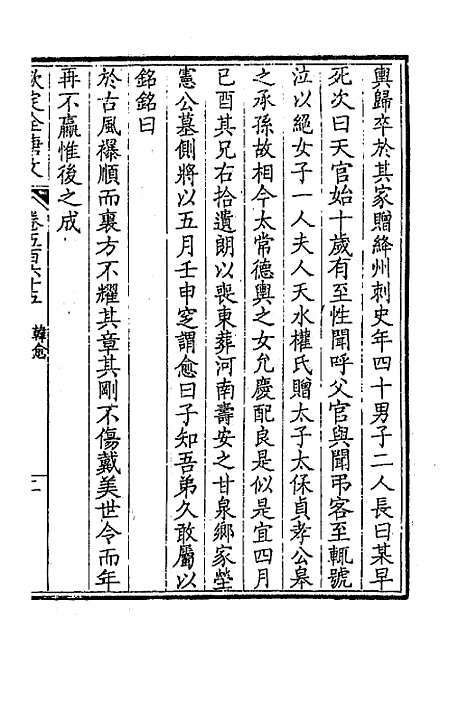 輿歸卒於其家贈絳州刺史年四十男子二人長曰某早
死次曰天官始十歲有至性聞呼父官與聞弔客至輒號
泣以絕女子一人夫人天水權氏贈太子太保貞孝公皋
之承孫故相今太常德輿之女允慶配良是似是宜四月
己酉其兄右拾遺朗以喪東葬河南壽安之甘泉鄉家塋
憲公墓側將以五月壬申窆謂愈曰子知吾弟久敢屬以
銘銘曰
於古風襮順而裏方不耀其章其剛不傷戴美世令而年
再不贏惟後之成
欽定全唐文
卷五百六十五
韓愈